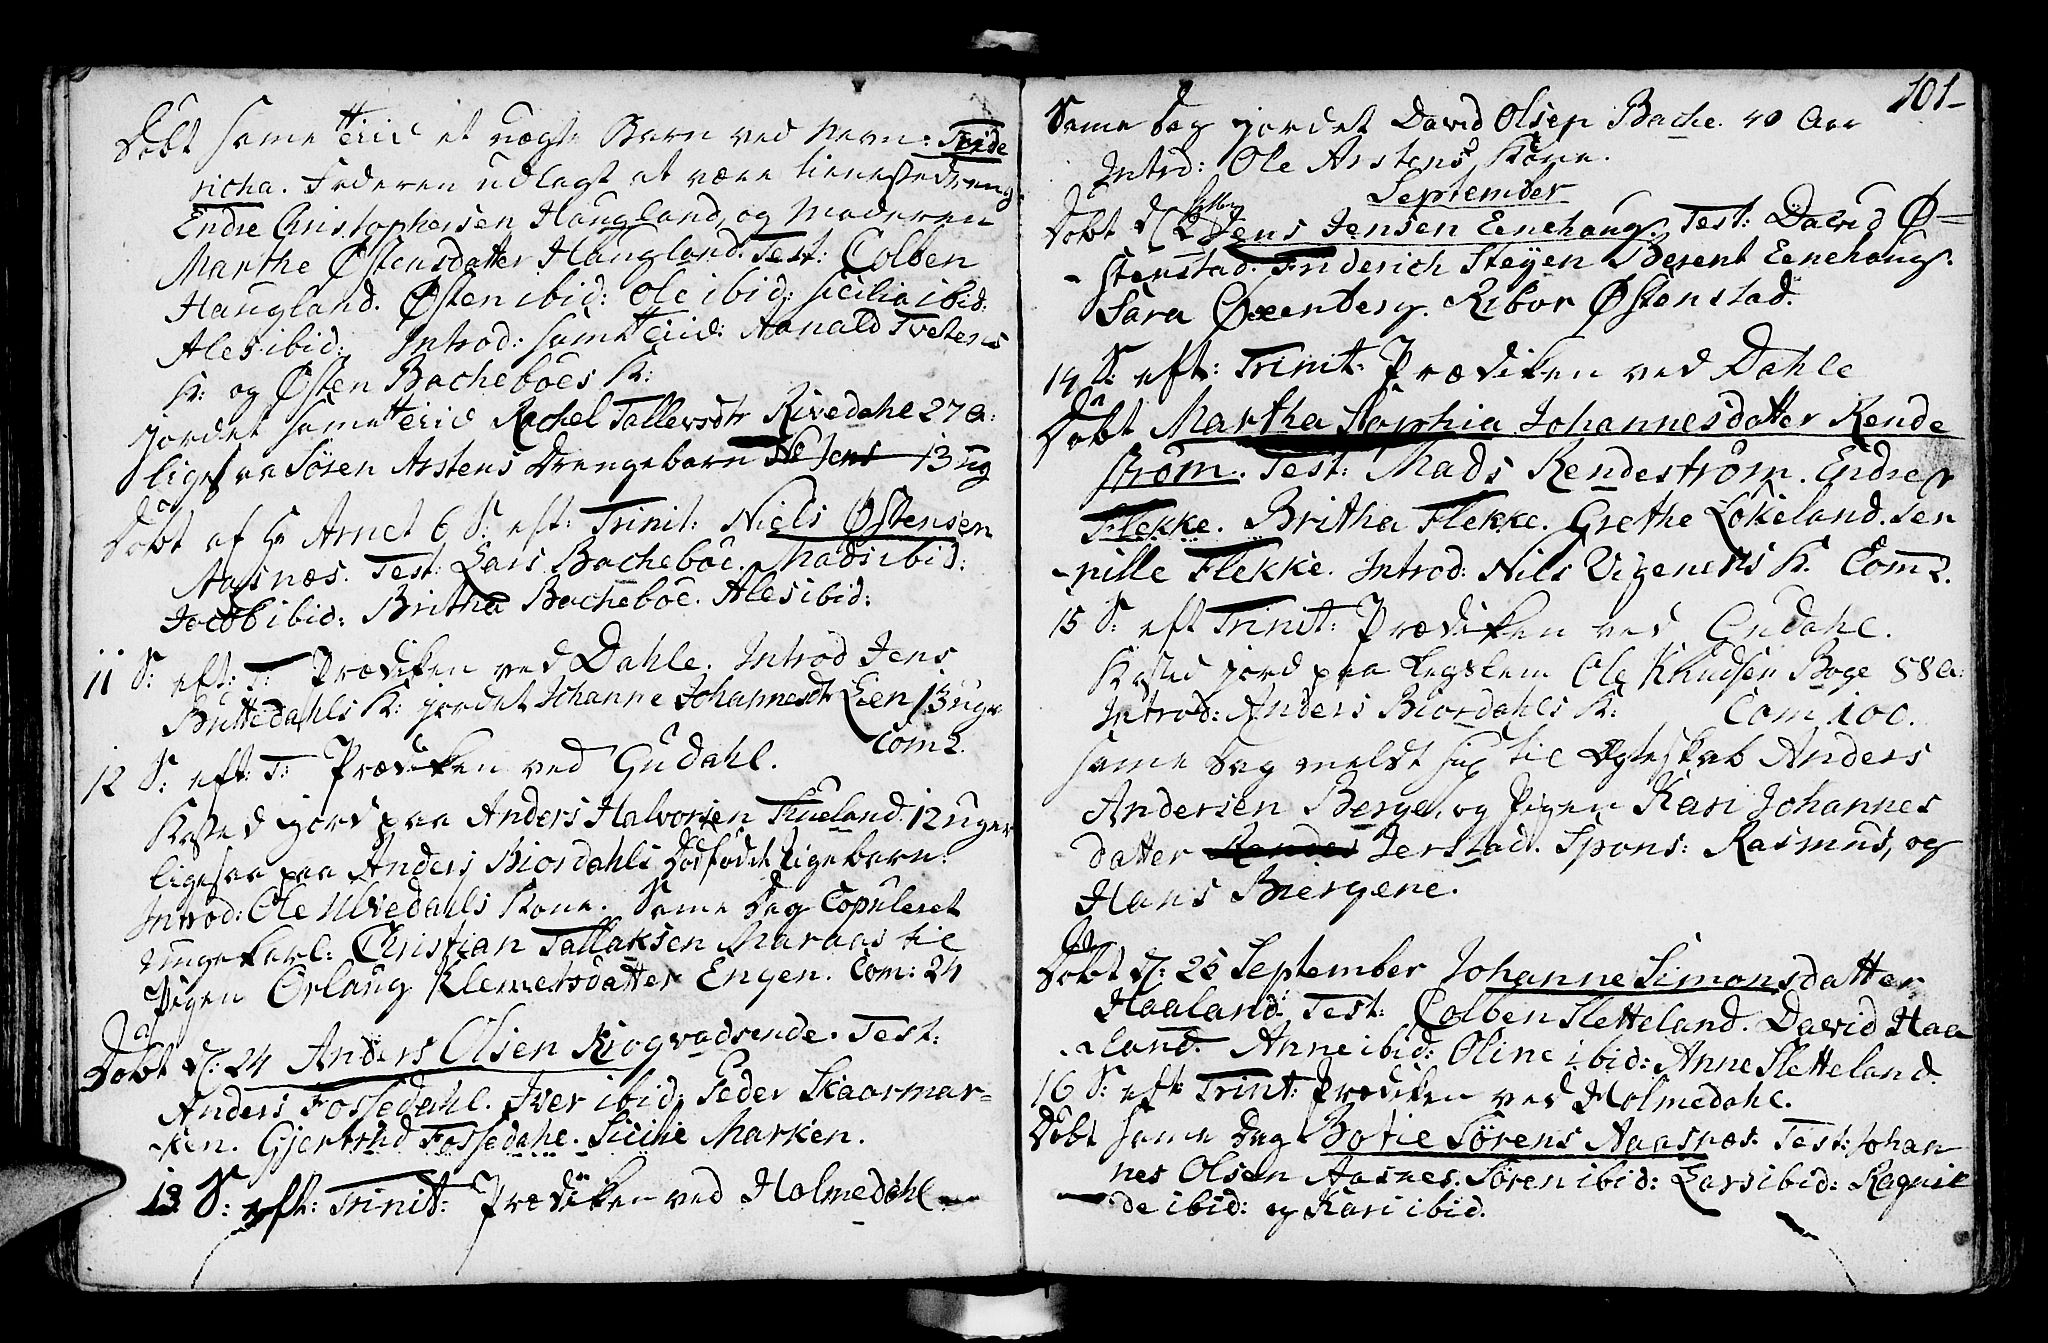 Døbt same Tiid et uægte Barn ved Navn: Fride
richa. Faderen udlagt at være tienestedreng
Endre Christophersen Haugland, og Moderen
Marthe Østensdatter Haugland. Test: Colben
Haugland. Østen ibid: Ole ibid: Sicilia ibid:
Ales ibid: Introd: same Tiid: Aanald Tvetens
K: og Østen Bacheboes K:
jordet same Tiid Rachel Tallevsdtr Rivedahl 27 a:
ligesaa Søren Arstens Drengebarn Jens 13 ug
Døbt af Hr Arnet 6 S: eft: Trinit: Niels Østensen
Aasnæs. Test: Lars Bacheboe. Mads ibid:
Jacob ibid: Britha Bacheboe. Ales ibid:
11 S: eft: T: Prædiken ved Dahle. Introd Jens
Buttedahls K: jordet Johanne Johannesdtr Lien 13 uger
Com 2.
12 S: eft: T: Prædiken ved Gudahl.
Kasted jord paa Anders Halvorsen Tueland 12 uger
ligesaa paa Anders Biordahls dødfødt Pigebarn.
Introd: Ole Ulvedahls Kone. Same Dag Copuleret
Ungekarl: Christian Tallaksen Maraas til
Pigen Orlaug Klemetsdatter Engen. Com: 24
Døbt d: 24 Anders Olsen Kiogvadsende. Test:
Anders Fossedahl. Iver ibid: Peder Skaarmar=
ken. Gjertrud Fossedahl. Sicilie Marken.
13 S: eft: Trinit: Prædiken ved Holmedahl
101
Same Dag jordet David Olsen Bache 40 Aar
Introd: Ole Arstens Kone.
September
Døbt d 2 Septbr Jens Jensen Eenehaug. Test: David Ø=
stenstad. Friderich Steyen Berent Eenehaug.
Sara Oxenberg. Ribor Østenstad.
14 S: eft: Trinit: Prædiken ved Dahle
Døbt Martha Sophia Johannesdatter Rende
strøm. Test: Mads Rendestrøm. Endre
Flekke. Britha Flekke. Grethe Løkeland. Per
nille Flekke. Introd: Nils Vigenes K. Com 2.
15 S: eft Trinit: Prædiken ved Gudahl.
Kasted jord paa Legslem Ole Knudsen Boge 88 a:
Introd: Anders Biordahls K: Com 100.
same Dag meldt sig til Ægteskab Anders
Andersen Berge, og Pigen Kari Johannes
datter Jerstad. Spons: Rasmus, og
Hans Bergene.
Døbt d: 25 September Johanne Simonsdatter
Haaland: Test: Colben Sletteland. David Haa
land. Anne ibid: Oline ibid: Anne Sletteland.
16 S: eft Trint: Prædiken ved Holmedahl.
Døbt same Dag Botie Sørens Aasnæs. Test: Johan
nes Olsen Aasnes. Søren ibid: Lars ibid: Ragnil
de ibid: og Kari ibid.